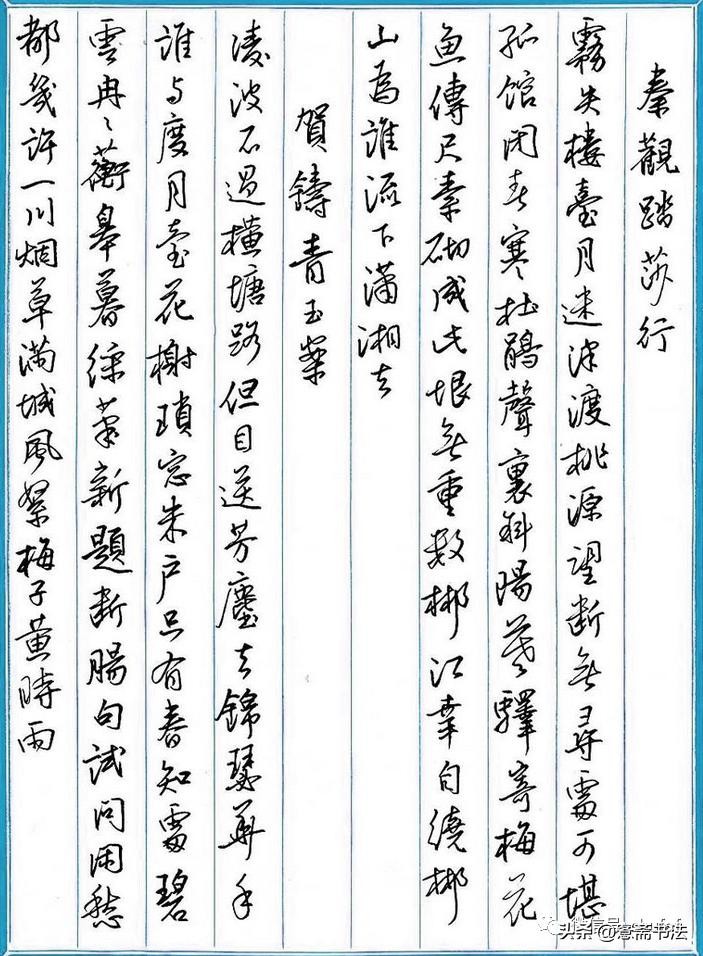 秦觀踏莎行
霧失樓臺月迷津渡桃源望断無尋處可堪
孤馆闭春寒杜鹃聲裏斜陽暮驛寄梅花
魚傳尺素砌成此恨無重數郴江幸自繞郴
山為誰流下瀟湘去
賀鑄青玉案
凌波不過横塘路但目送芳塵去錦瑟華年
誰与度月臺花榭瑣窗朱户只有春知處碧
雲冉冉蘅皋暮綵筆新題断腸句試问闲愁
都幾許一川烟草滿城風絮梅子黄時雨
头条 @斋书法